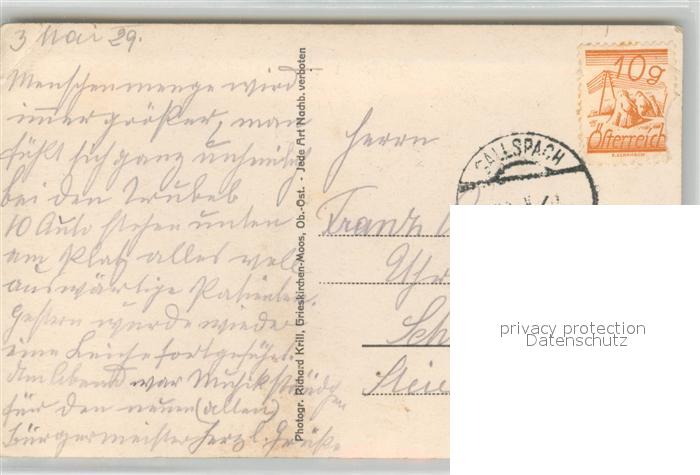 3 Mai 29.
Menschenmenge wird
immer größer, man
fühlt sich ganz
bei dem Trubel
10 Auto stehen unten
am Platz alles voll
auswärtige Patienten.
Gestern wurde wieder
eine Leiche fortgeführt.
Am Abend war Musikständchen
für den neuen (alten)
Bürgermeister herzl. Grüße
Photogr. Richard Krill, Grieskirchen-Moos, Ob.-Öst. - Jede Art Nachb. verboten
10g
Österreich
GALLSPACH
Herrn
Franz
Uhr
Sch
Steie
privacy protection
Datenschutz